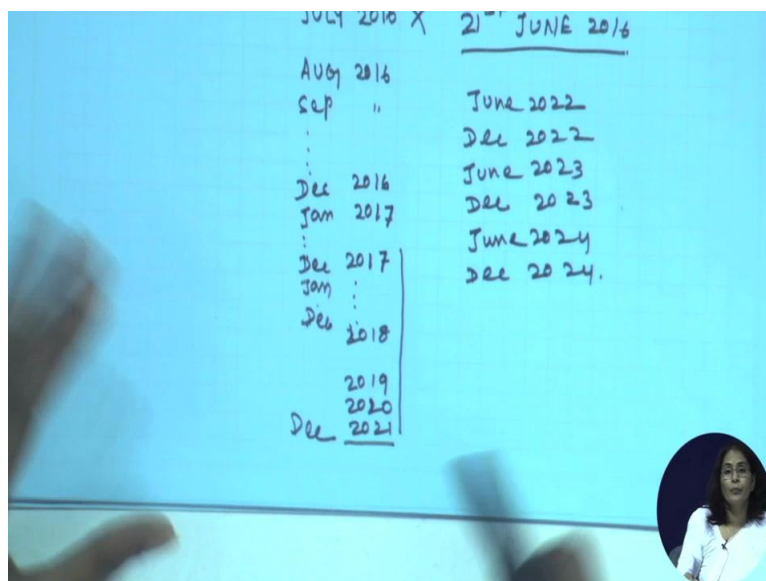 JULY 2016 X
AUG 2016
Sep "
Dec 2016
Jan 2017
Dec 2017
Jan
Dec 2018
2019
2020
Dec 2021
21st JUNE 2016
June 2022
Dec 2022
June 2023
Dec 2023
June 2024
Dec 2024.